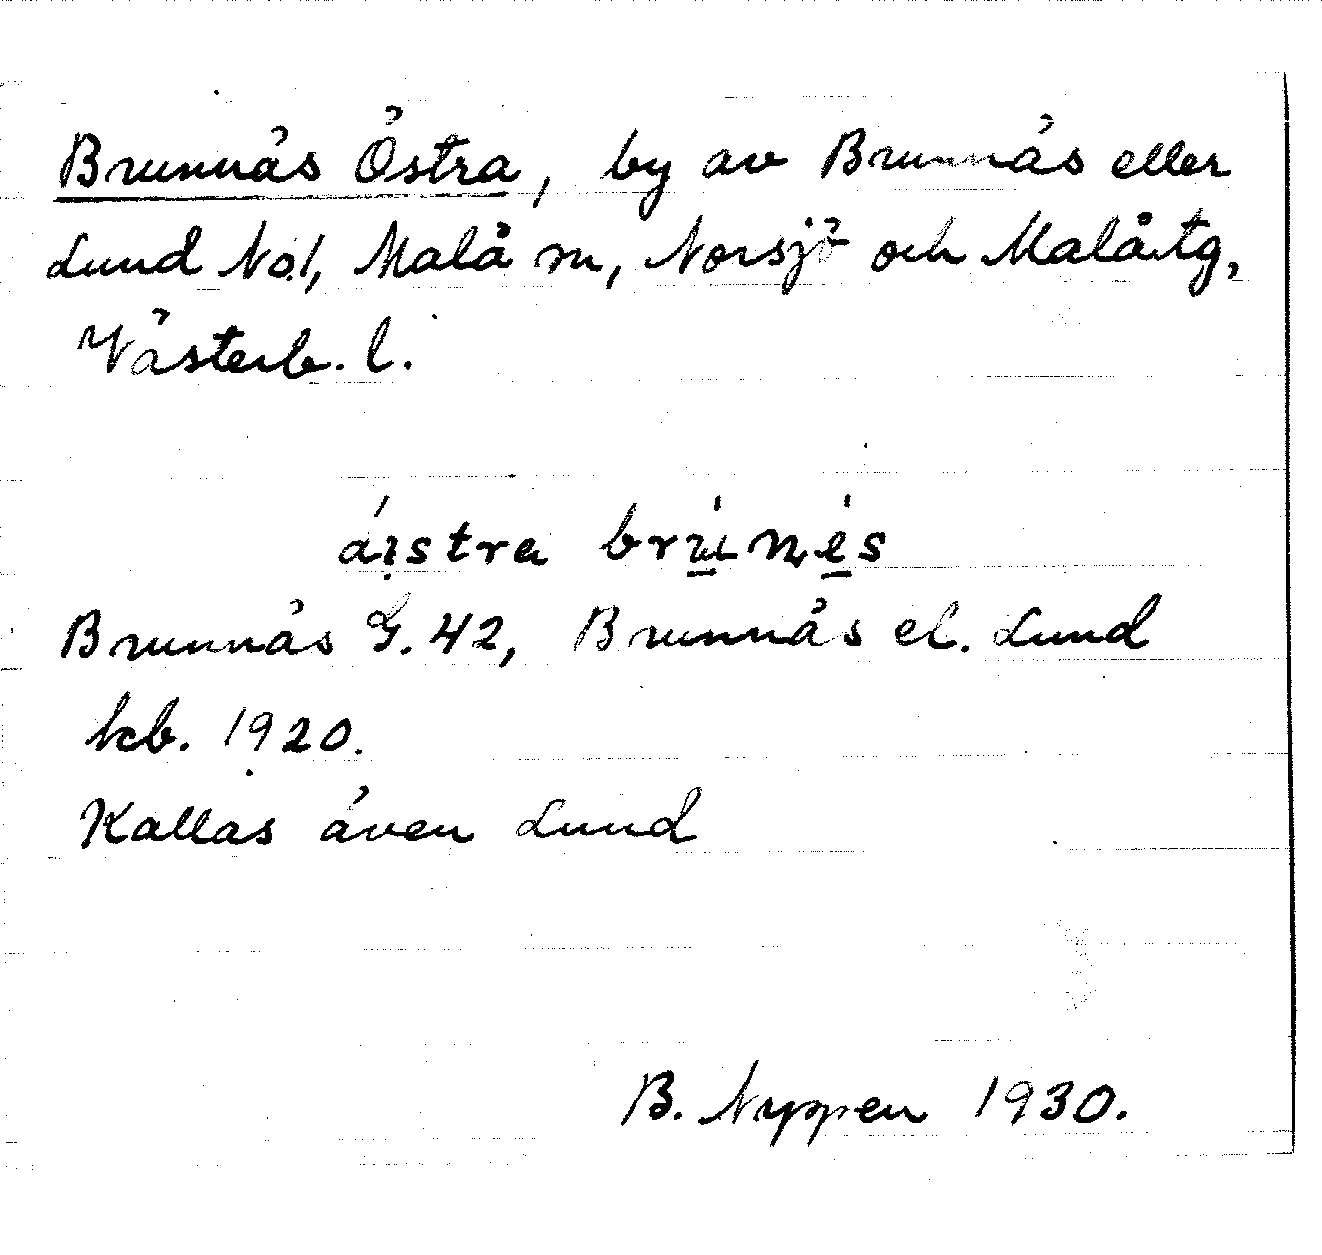 Brunnäs Östra, by av Brunnäs eller
Lund No.1, Malå sn, Norsjö och Malå tg,
Västerb. l.
áı̣stra brú̱ı̇nė̱s
Brunnäs G. 42, Brunnäs el. Lund
kb. 1920.
Kallas även Lund
B. Nyppen 1930.